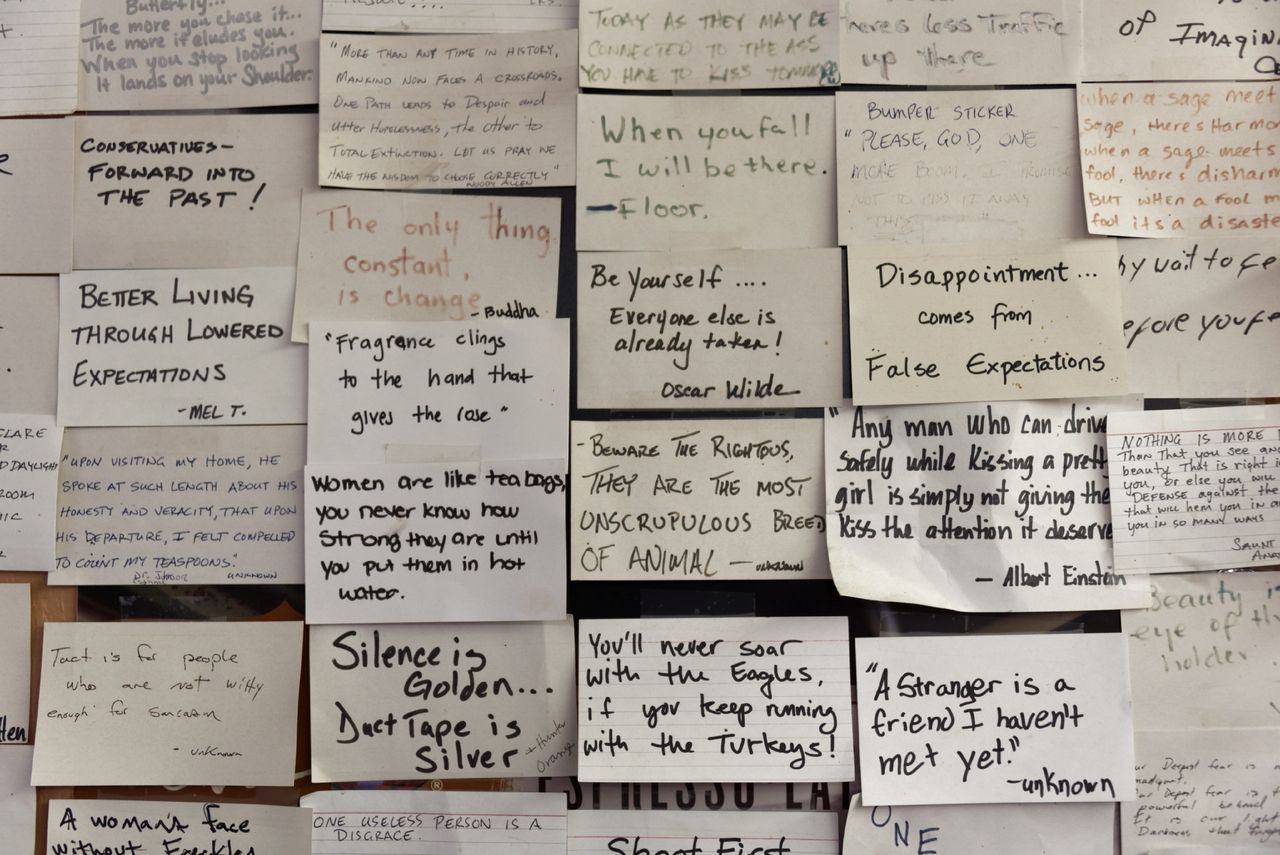 Butterfly...
The more you chase it...
The more it eludes you.
When you stop looking
It lands on your Shoulder.
"MORE THAN ANY TIME IN HISTORY,
MANKIND NOW FACES A CROSSROADS.
ONE PATH LEADS to Despair and
utter Hopelessness, the other to
TOTAL EXTINCTION. LET US PRAY WE
HAVE THE WISDOM TO CHOOSE CORRECTLY"
WOODY ALLEN
TODAY AS THEY MAY BE
CONNECTED TO THE ASS
YOU HAVE TO KISS TOMORROW
less Traffic
up there
OF IMAGIN
CONSERVATIVES—
FORWARD INTO
THE PAST!
The only thing
constant,
is change
- Buddha
When you fall
I will be there.
—Floor.
BUMPER STICKER
"PLEASE, GOD, ONE
MORE BOOM. I'LL PROMISE
NOT TO PISS IT AWAY
THIS
when a sage meet
Sage, there's Harmo
when a sage meets
fool, there's disharm
BUT when a fool m
fool its a disaste
BETTER LIVING
THROUGH LOWERED
EXPECTATIONS
-MEL T.
"Fragrance clings
to the hand that
gives the rose"
Be Yourself ....
Everyone else is
already taken!
Oscar Wilde
Disappointment...
comes from
False Expectations
hy wait to fe
efore you fe
CLARE
DAYLIGHT
ROOM
"UPON VISITING MY HOME, HE
SPOKE AT SUCH LENGTH ABOUT HIS
HONESTY AND VERACITY, THAT UPON
HIS DEPARTURE, I FELT COMPELLED
TO COUNT MY TEASPOONS."
UNKNOWN
Women are like tea bags,
you never know how
Strong they are until
you put them in hot
water.
- BEWARE THE RIGHTOUS,
THEY ARE THE MOST
UNSCRUPULOUS BREED
OF ANIMAL — unknown
"Any man who can driv
Safely while kissing a prett
girl is simply not giving the
Kiss the attention it deserve
— Albert Einstein
NOTHING IS MORE I
Than That you see and
beauty That is right i
you, or else you will
DEFENSE against the
that will hem you in a
you in so many ways
SAUNT
Beauty i
eye of th
holder
Tact is for people
who are not witty
enough for sarcasm
- unknown
Silence is
Golden...
Duct Tape is
Silver
You'll never soar
with the Eagles,
if you keep running
with the Turkeys!
"A Stranger is a
friend I haven't
met yet."
-unknown
ur Deepest fear is n
Deepest fear is t
powerful beyond
It is our light
Darkness that
ESPRESSO LAT
A woman's face
without Freckles
ONE USELESS PERSON IS A
DISGRACE.
Shoot First
ONE